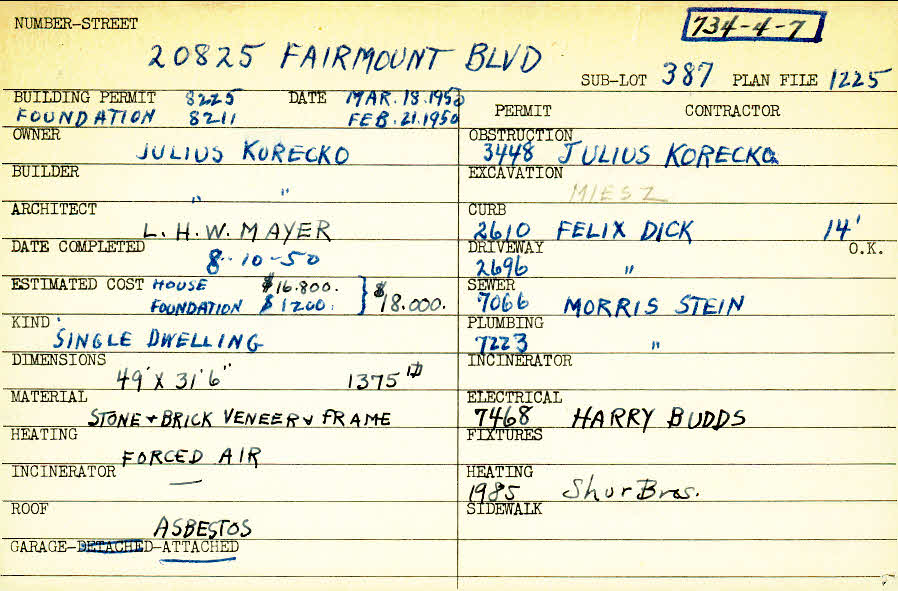 NUMBER-STREET
734-4-7
20825 FAIRMOUNT BLVD
SUB-LOT 387 PLAN FILE 1225
BUILDING PERMIT 8225 DATE MAR. 18. 1950
FOUNDATION 8211 FEB. 21. 1950
PERMIT CONTRACTOR
OWNER
JULIUS KORECKO
OBSTRUCTION
3448 JULIUS KORECKO
BUILDER
" "
EXCAVATION
MIESZ
ARCHITECT
L. H. W. MAYER
CURB
2610 FELIX DICK 14'
DATE COMPLETED
8-10-50
DRIVEWAY O.K.
2696 "
ESTIMATED COST HOUSE $16.800.
FOUNDATION $1200. } $18.000.
SEWER
7066 MORRIS STEIN
KIND
SINGLE DWELLING
PLUMBING
7223 "
DIMENSIONS
49' X 31'6" 1375
INCINERATOR
MATERIAL
STONE + BRICK VENEER & FRAME
ELECTRICAL
7468 HARRY BUDDS
HEATING
FORCED AIR
FIXTURES
INCINERATOR
—
HEATING
1985 Shur Bros.
ROOF
ASBESTOS
SIDEWALK
GARAGE-DETACHED-ATTACHED